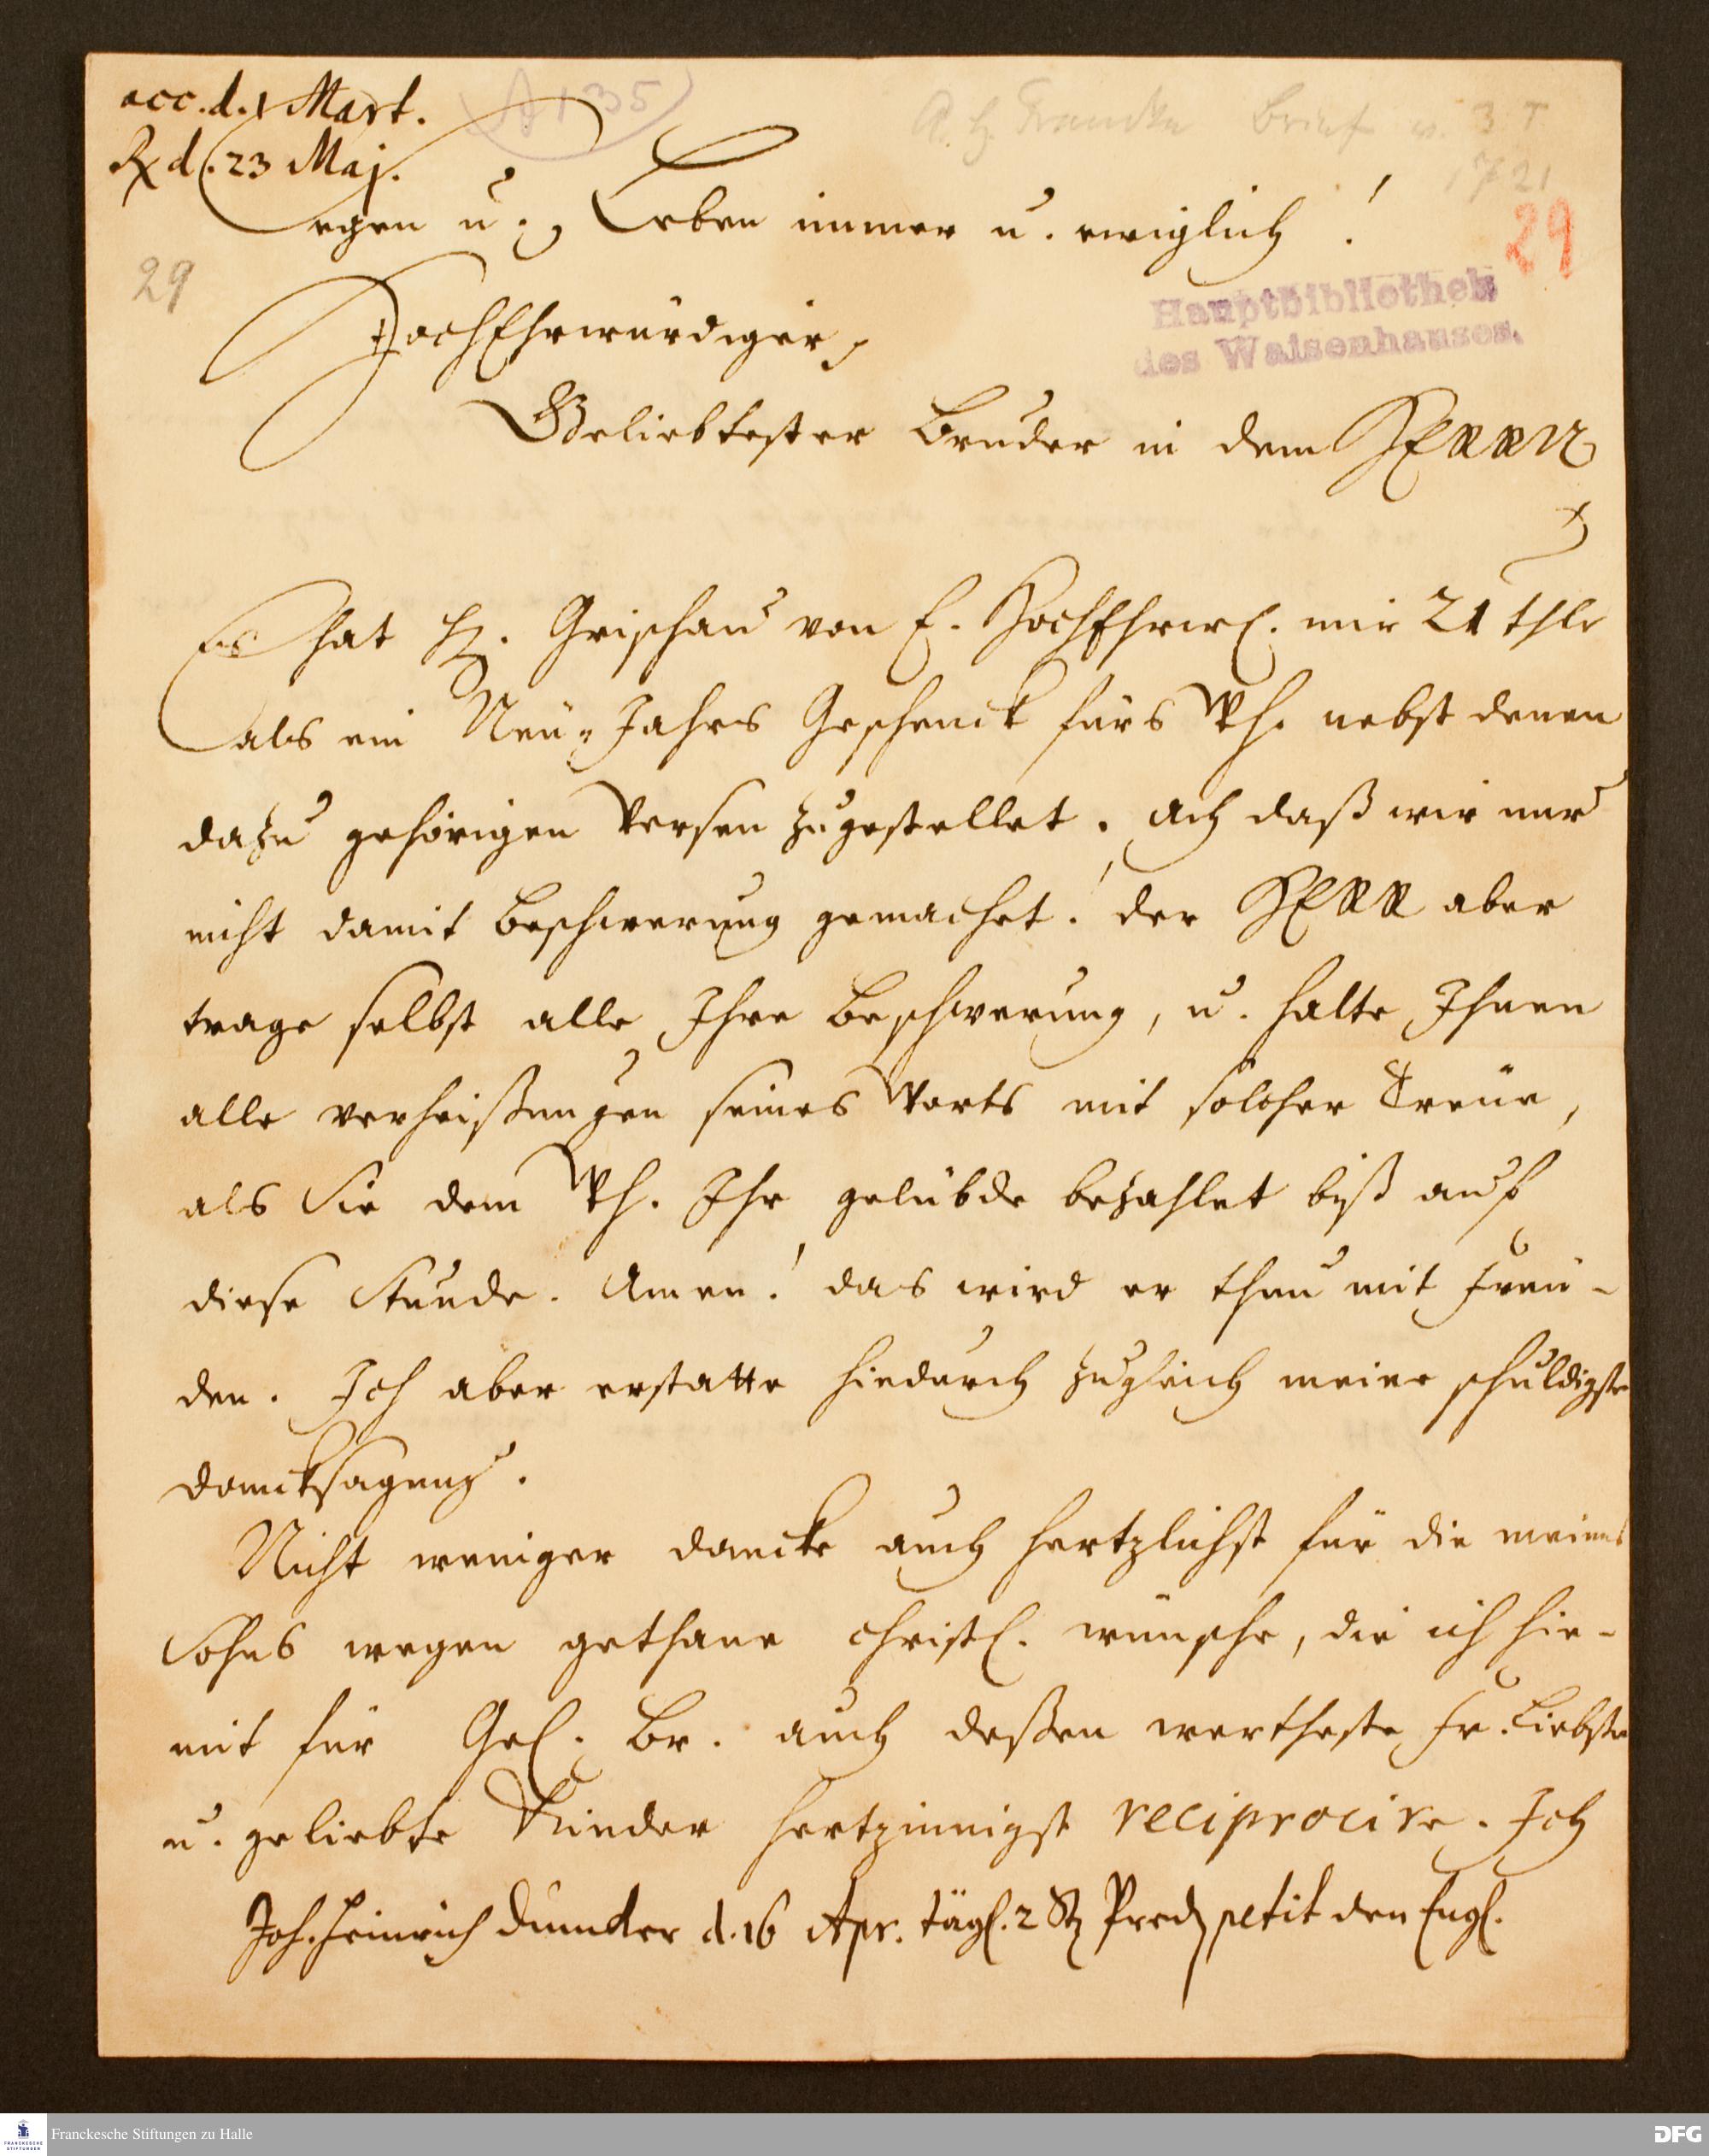 acc. d. 1 Mart.
A 135
A. H. Francke Brief v. 3 T
Rx d. 23 Maj.
1721
Segen u. Leben immer u. ewiglich!
29
29
HochEhrwürdiger,
Hauptbibliothek
des Waisenhauses.
Geliebtester Bruder in dem HERRN
Es hat H. Grischau von E. HochEhrw. mir 21 thlr
als ein Neu-Jahrs Geschenck fürs Wh. nebst denen
dazu gehörigen Versen zugestellet. Ach daß wir nur
nicht damit beschwerung gemachet! der HERR aber
trage selbst alle Ihre beschwerung, u. halte Ihnen
alle verheißungen seines Worts mit solcher Treue,
als Sie dem Wh. Ihr gelübde bezahlet biß auf
diese Stunde. Amen! das wird er thun mit Freu-
den. Ich aber erstatte hiedurch zugleich meine schuldigste
dancksagung.
Nicht weniger dancke auch hertzlichst für die meines
Sohns wegen gethane christl. wünsche, die ich hie-
mit für Gel. Br. auch deßen wertheste Fr. Liebste
u. geliebte Kinder hertzinnigst reciprocire. Ich
Joh. Heinrich Duncker d. 16 Apr. tägl. 2 St Pred petit den Engl.
Franckesche Stiftungen zu Halle
FRANCKESCHE
STIFTUNGEN
DFG